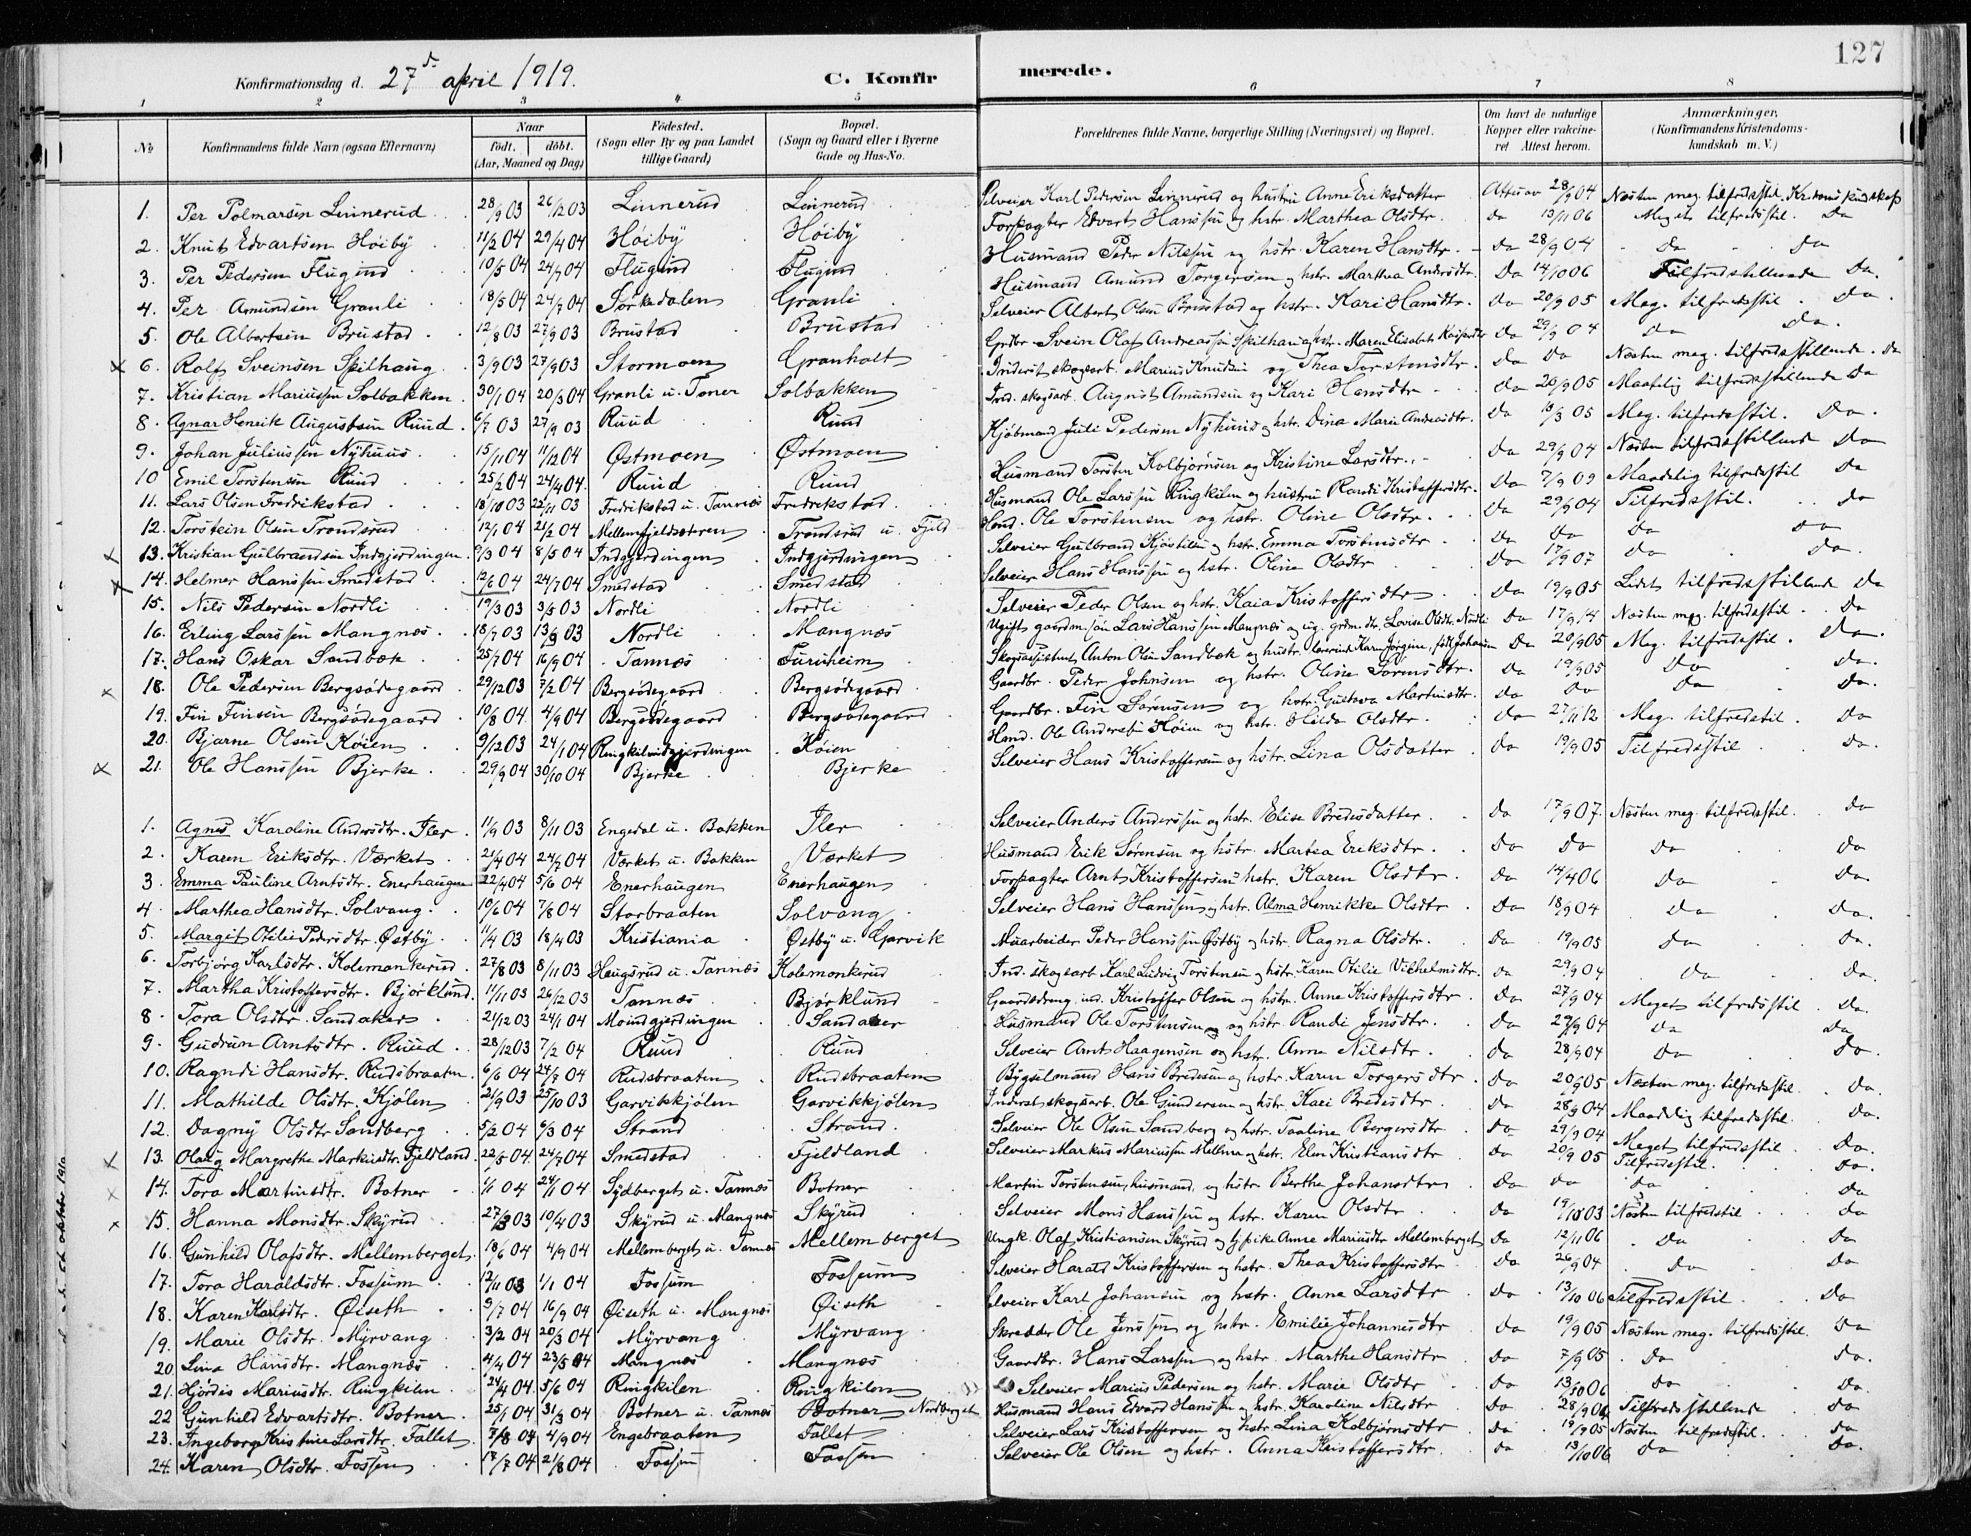 127
Konfirmationsdag d. 27de april 1919. C. Konfirmerede.
1 2 3 4 5 6 7 8
No Konfirmandens fulde Navn (ogsaa Efternavn) Naar født. døbt. (Aar, Maaned og Dag) Fødested. (Sogn eller By og paa Landet tillige Gaard) Bopæl. (Sogn og Gaard eller i Byerne Gade og Hus-No. Forældrenes fulde Navne, borgerlige Stilling (Næringsvei) og Bopæl. Om havt de naturlige Kopper eller vakcineret Attest herom. Anmærkninger. (Konfirmandens Kristendomskundskab m. V.)
1. Per Polmarsen Linnerud 28/9 03 26/12 03 Linnerud Linnerud Selveier Karl Pedersen Linnerud og hustru Anne Eriksdatter 28/9 04 Næsten meg. tilfredsstil. Kristendomskundskap
2. Knut Edvartsen Høiby 11/2 04 29/4 04 Høiby Høiby Forpagter Edvart Hanssen og hstr. Marthea Olsdtr. do 13/11 06 Meget tilfredsstil. Do
3. Per Pedersen Flugind 10/5 04 24/7 04 Flugind Flugind Husmand Peder Nilssen og hstr. Karen Hansdtr. Do 28/9 04 Do Do
4. Per Amundsen Granli 18/5 04 24/7 04 Sørkedalen Granli Husmand Amund Torgersen og hstr. Marthea Andersdtr. Do 14/10 06 Tilfredsstillende Do.
5. Ole Albertsen Brustad 12/8 03 27/9 03 Brustad Brustad Selveier Albert Olsen Brustad og hstr. Kari Hansdtr. Do 20/9 05 Meg. tilfredsstil. Do.
x 6. Rolf Sveinsen Spilhaug 3/9 03 27/9 03 Stormoen Granholt Grdbr. Svein Olaf Andreassen Spilhaug og hstr. Maren Elisabeth Do 29/9 04 Do Do.
7. Kristian Mariussen Solbakken 30/1 04 20/3 04 Granli u. Toner Solbakken Inderst skogsarb. Marius Knudsen og Thea Torstensdtr. Do Do Næsten meg. tilfredsstillende. Do
8. Agnar Henrik Augustsen Ruud 6/7 03 27/9 03 Ruud Ruud Ind. skogsarb. August Amundsen og Kari Hansdtr Do 20/9 05 Maadelig tilfredsstillende Do
9. Johan Juliussen Nyhuus 15/11 04 11/12 04 Østmoen Østmoen Kjøbmand Juli Pedersen Nyhuus og hstr. Dina Marie Andreasdtr. Do 18/3 05 Meg. tilfredsstil. Do.
10 Emil Torstensen Ruud 25/2 04 24/4 04. Ruud Ruud Husmand Torsten Kolbjørnsen og Kristine Larsdtr. Do 29/9 04 Næsten tilfredsstillende Do
11. Lars Olsen Fredrikstad 18/10 03 22/11 03 Fredrikstad u. Tannæs Fredrikstad Husmand Ole Larssen Ringkilen og hustru Randi Kristoffersdtr. Do 7/9 09 Maadelig tilfredsstil Do
12. Torstein Olsen Trondsrud 12/1 04 21/2 04 Mellemfjeldsætren Trondsrud u. Fjeld Hmd. Ole Torstensen og hstr. Oline Olsdtr. Do 29/9 04 Tilfredsstil. Do
x 13. Kristian Gulbrandsen Indgjerdingen 9/3 04 8/5 04 Indgjerdingen Indgjerdingen Selveier Gulbrand Kjøstilsen og hstr. Emma Torstensdtr Do Do Do Do
x 14. Helmer Hanssen Smedstad 12/6 04 24/7 04 Smedstad Smedstad Selveier Hans Hanssen og hstr. Oline Olsdtr Do 17/9 07 Do Do.
15. Nils Pedersen Nordli 19/3 03 3/5 03 Nordli Nordli Selveier Peder Olsen og hstr. Kaia Kristoffersdtr Do 19/9 05 Lidet tilfredsstillende Do
16. Erling Larssen Mangnæs 18/7 03 13/9 03 Nordli Mangnæs Ugift gaardm.søn Lars Hanssen Mangnæs og ug. grdm.dtr. Lovise Olsdtr. Nordli Do 17/9 14 Næsten meg. tilfredsstil. Do
17. Hans Oskar Sandbæk 25/7 04 16/9 04 Tannæs Furuheim Skogassistent Anton Olsen Sandbæk og hustr. Karen Jørgine, født Johansen Do 20/9 05 Meg. tilfredsstil. Do.
x 18. Ole Pedersen Bergsødegaard 29/12 03 7/2 04 Bergsødegaard Bergsødegaard Gaardbr. Peder Johnsen og hstr. Oline Do 19/9 05 Do Do.
19. Fin Finsen Bergsødegaard 10/8 04. 4/9 04 Bergsødegaard Bergsødegaard Gaardbr. Fin Sørensen og hstr. Gustava Martinsdtr. Do Do Do Do.
20. Bjarne Olsen Køien 9/12 03 24/1 04 Ringkilindgjerdingen Køien Hmd. Ole Andersen Køien og hstr. Hilda Olsdtr. Do 27/11 12 Meg. tilfredsstil. Do
x 21. Ole Hanssen Bjerke 29/9 04 30/10 04 Bjerke Bjerke Selveier Hans Kristoffersen og hstr. Lina Olsdatter Do 19/9 05 Tilfredsstil Do.
1. Agnes Karoline Andersdtr. Iler 11/9 03 8/11 03 Engedal u. Bakken Iler Selveier Anders Anderssen og hstr. Elise Bredesdatter. Do 17/9 07. Næsten meg. tilfredsstil. Do
2. Karen Eriksdtr. Værket 21/4 04 24/7 04 Værket u. Bakken Værket Husmand Erik Sørensen og hstr. Martea Eriksdtr. Do Do Do Do
3. Emma Pauline Arntsdtr. Enerhaugen 22/4 04 5/6 04 Enerhaugen Enerhaugen Forpagter Arnt Kristoffersen hstr. Karen Olsdtr. Do 14/4 06 Do Do.
4. Marthea Hansdtr. Solvang 10/6 04 7/8 04 Storbraaten Solvang Selveier Hans Hanssen og hstr. Alma Henrikke Olsdtr Do 18/9 04 Do Do.
5. Margit Otilie Pedersdtr. Østby 11/4 03 18/4 03 Kristiania Østby u. Garvik Muarbeider Peder Hanssen Østby og hstr. Ragna Olsdtr. Do 19/9 05 Do Do.
6. Torbjørg Karlsdtr. Kolemonkerud 27/8 03 8/11 03 Haugsrud u. Tannæs Kolemonkerud Ind. skogsarb Karl Ludvig Torstensen og hstr. Karen Otilie Vilhelmsdtr. Do 29/9 04 Do Do.
7. Martha Kristoffersdtr. Bjørklund 11/11 03 26/12 03 Tannæs Bjørklund Gaardsdreng ind. Kristoffer Olsen og hstr. Anne Kristoffersdtr Do 27/9 04 Meget tilfredsstil. Do.
8. Tora Olsdtr. Sandaker 21/12 03 24/1 04 Moindgjerdingen Sandaker Husmand Ole Torstensen og hstr. Randi Jensdtr. Do 27/9 04 Do Do
9. Gudrun Arntsdtr. Ruud 28/12 03 7/2 04 Ruud Ruud Selveier Arnt Haagensen og hstr. Anne Nilsdtr. Do 28/9 04 Do Do.
10. Ragndi Hansdtr. Rudsbraaten 6/6 04 24/7 04 Rudsbraaten Rudsbraaten Bygselmand Hans Bredesen og hstr. Karen Torgersdtr. Do 20/9 05 Næsten meg. tilfredsstil. Do.
11. Mathilde Olsdtr. Kjølen 21/9 03 25/10 03 Garvikkjølen Garvikkjølen Inderst skogsarb. Ole Gundersen og hstr. Kari Bredesdtr. Do 28/9 04 Maadelig tilfredsstil. Do.
12. Dagny Olsdtr Sandberg 5/2 04 6/3 04 Strand Strand. Selveier Ole Olsen Sandberg og hstr. Paaline Bergersdtr. Do 29/9 04 Meget tilfredsstil. Do.
x 13. Olaug Margrethe Markusdtr. Fjeldland 22/5 04. 24/7 04 Smedstad Fjeldland Selveier Markus Mariussen Mellem og hstr. Elen Kristiansdtr Do 20/9 05 Tilfredsstil. Do.
x 14. Tora Martinsdtr. Botner 1/1 04 24/1 04 Sydberget u. Tannæs Botner Martin Torstensen, husmand, og hstr Berthe Johansdtr Do Do Do Do
x 15. Hanna Monsdtr. Skyrud 27/3 03 10/4 03 Skyrud u. Mangnæs Skyrud Selveier Mons Hanssen og hstr. Karen Olsdtr. Do 19/10 03 Næsten tilfredsstil Do
16. Gunhild Olafsdtr. Mellemberget 18/6 04 4/9 04 Mellemberget u. Tannæs Mellemberget Ungk. Olaf Kristiansen Skyrud og pike Anne Mariusdtr Mellemberget Do 12/11 06 Do Do
17. Tora Haraldsdtr. Fossum 12/11 03 1/1 04 Fossum Fossum Selveier Harald Kristoffersen og hstr. Thea Kristoffersdtr Do 26/9 04 Do Do
18. Karen Karlsdtr. Øiseth 9/7 04 16/9 04 Øiseth u. Mangnæs Øiseth Selveier Karl Johansen og hstr. Anna Larsdtr Do 13/10 06 Tilfredsstil Do
19. Marie Olsdtr. Myrvang 3/2 04 20/3 04 Myrvang Myrvang Skrædder Ole Jenssen og hstr. Emilie Johannesdtr Do 19/9 05 Næsten meg. tilfredsstil. Do
20 Lina Hansdtr. Mangnæs 4/4 04 23/5 04 Mangnæs Mangnæs Gaardbr. Hans Larssen og hstr. Marthe Hansdtr Do 7/9 05 Do Do.
21. Hjørdis Mariusdtr. Ringkilen 24/4 04. 5/6 04 Ringkilen Ringkilen Selveier Marius Pedersen og hstr. Marie Olsdtr Do 13/10 06 Do Do
22 Gunhild Edvartsdtr. Botner 25/1 04 31/3 04 Botner u. Tannæs Botner Nordberget Husmand Hans Edvard Hanssen og hstr. Karoline Nilsdtr Do 28/9 04 Tilfredsstillende Do
23. Ingeborg Kristine Larsdtr. Fallet 7/8 04 4/9 04 Engebraaten Fallet Selveier Lars Kristoffersen og hstr. Lina Kolbjørnsdtr Do 19/9 05 Næsten tilfredsstil. Do
24. Karen Olsdtr. Fossen 17/7 04 21/8 04 Fossen Fossen Selveier Ole Olsen og hstr. Anna Kristoffersdtr. Do 13/10 06 Do Do.